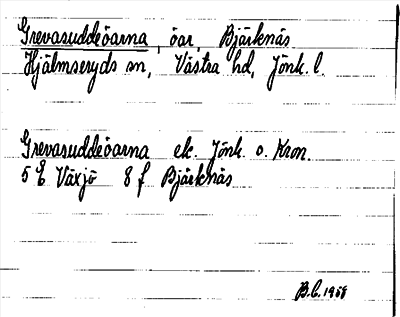 Grevasuddeöarna, öar, Bjärknäs
Hjälmseryds sn, Västra hd, Jönk. l.
Grevasuddeöarna ek. Jönk. o. Kron.
5 E Växjö 8 f Bjärknäs
B.C. 1958